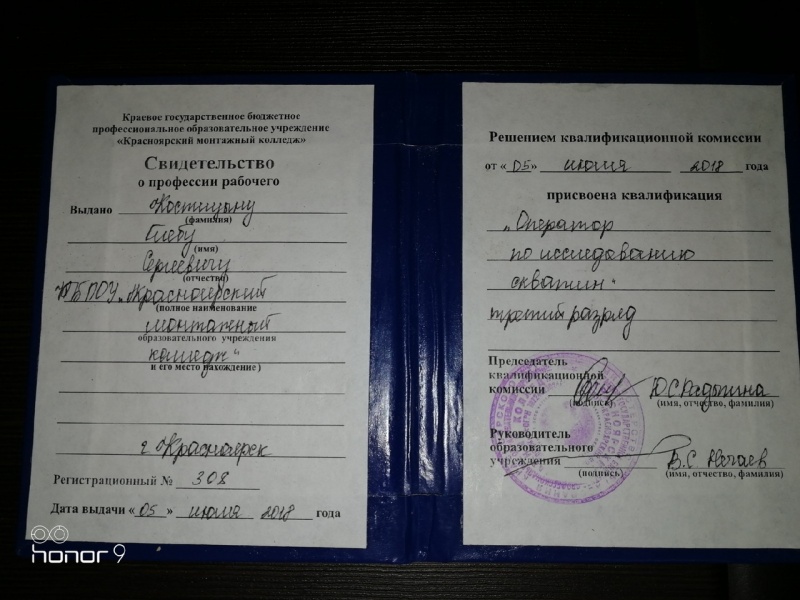 Краевое государственное бюджетное
профессиональное образовательное учреждение
«Красноярский монтажный колледж»
Свидетельство
о профессии рабочего
Выдано Костицыну
(фамилия)
Глебу
(имя)
Сергеевичу
(отчество)
КГБПОУ „Красноярский
(полное наименование
монтажный
образовательного учреждения
колледж“
и его место нахождение)
г Красноярск
Регистрационный № 308
Дата выдачи «05» июля 2018 года
Решением квалификационной комиссии
от «05» июля 2018 года
присвоена квалификация
„Оператор
по исследованию
скважин“
третий разряд
Председатель
квалификационной
комиссии
(подпись) (имя, отчество, фамилия)
Руководитель
образовательного
учреждения В.С Нечаев
(подпись) (имя, отчество, фамилия)
honor 9